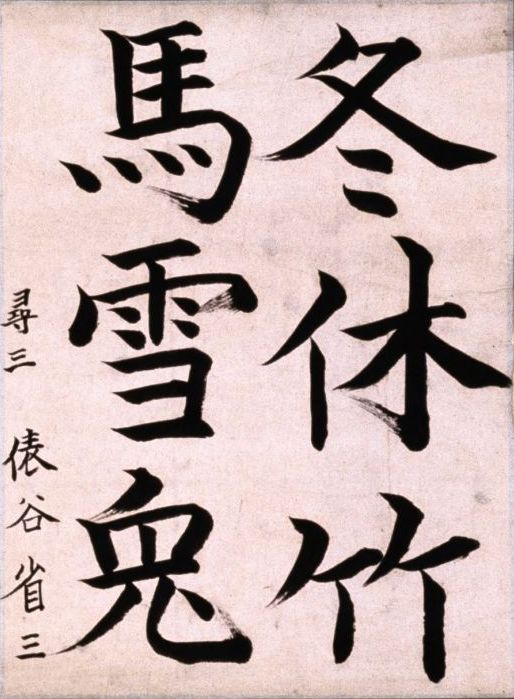 冬休竹
馬雪兎
尋三 俵谷省三